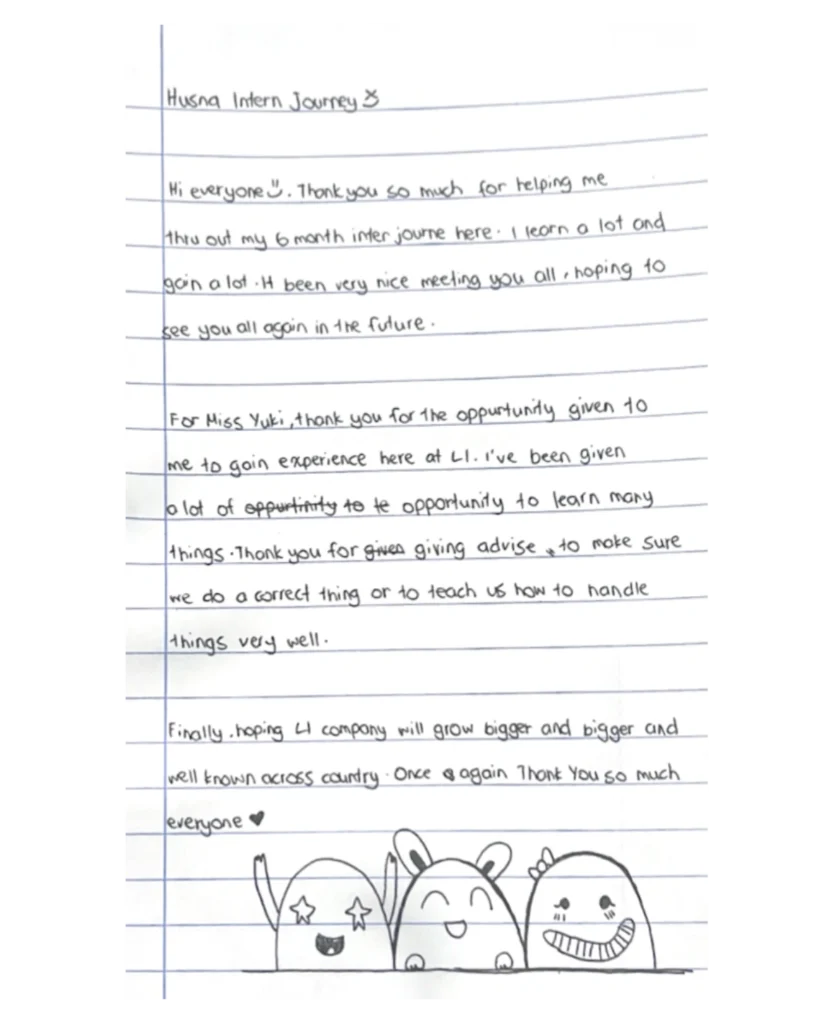 Husna Intern Journey
Hi everyone. Thank you so much for helping me
thru out my 6 month inter journe here. I learn a lot and
gain a lot. It been very nice meeting you all, hoping to
see you all again in the future.
For Miss Yuki, thank you for the oppurtunity given to
me to gain experience here at LI. I've been given
a lot of oppurtinity to te opportunity to learn many
things. Thank you for given giving advise, to make sure
we do a correct thing or to teach us how to handle
things very well.
Finally, hoping LI company will grow bigger and bigger and
well known across country. Once again Thank You so much
everyone ♥